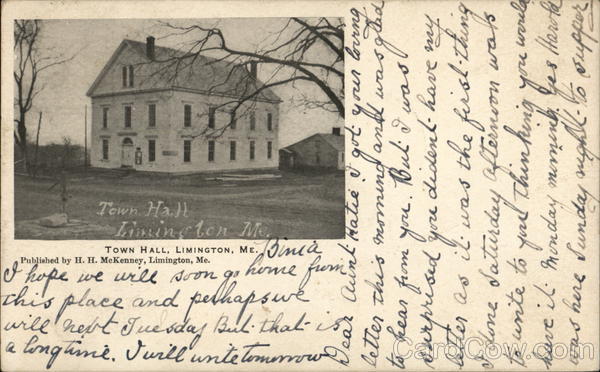 Town Hall
Limington Me.
TOWN HALL, LIMINGTON, ME.
Published by H. H. McKenney, Limington, Me.
Dear Aunt Katie I got your loving
letter this morning and was glad
to hear from you. But I was
surprised you dident have my
letter as it was the first thing
I done Saturday afternoon was
to write to you thinking you would
have it monday morning. yes Harold
was here Sunday night to supper
I hope we will soon go home from
this place and perhaps we
will next Tuesday But that is
a long time. I will write tomorrow
CardCow.com